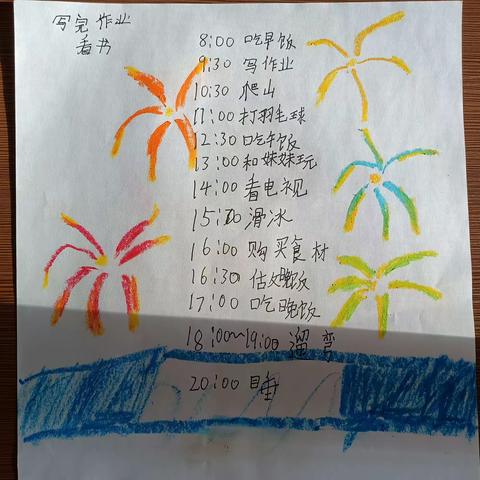 写完作业
看书
8:00 吃早饭
9:30 写作业
10:30 爬山
11:00 打羽毛球
12:30 吃午饭
13:00 和妹妹玩
14:00 看电视
15:00 滑冰
16:00 购买食材
16:30 估处晚饭
17:00 吃晚饭
18:00~19:00 遛弯
20:00 睡